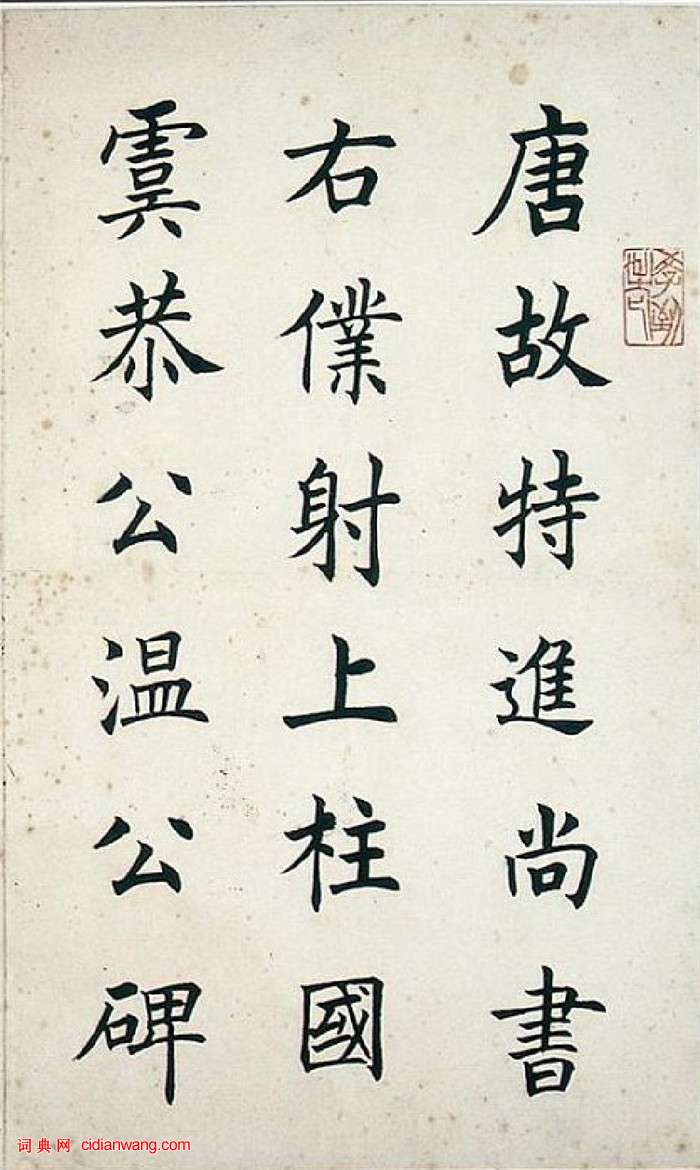 唐故特進尚書
右僕射上柱國
虞恭公温公碑
词典网 cidianwang.com